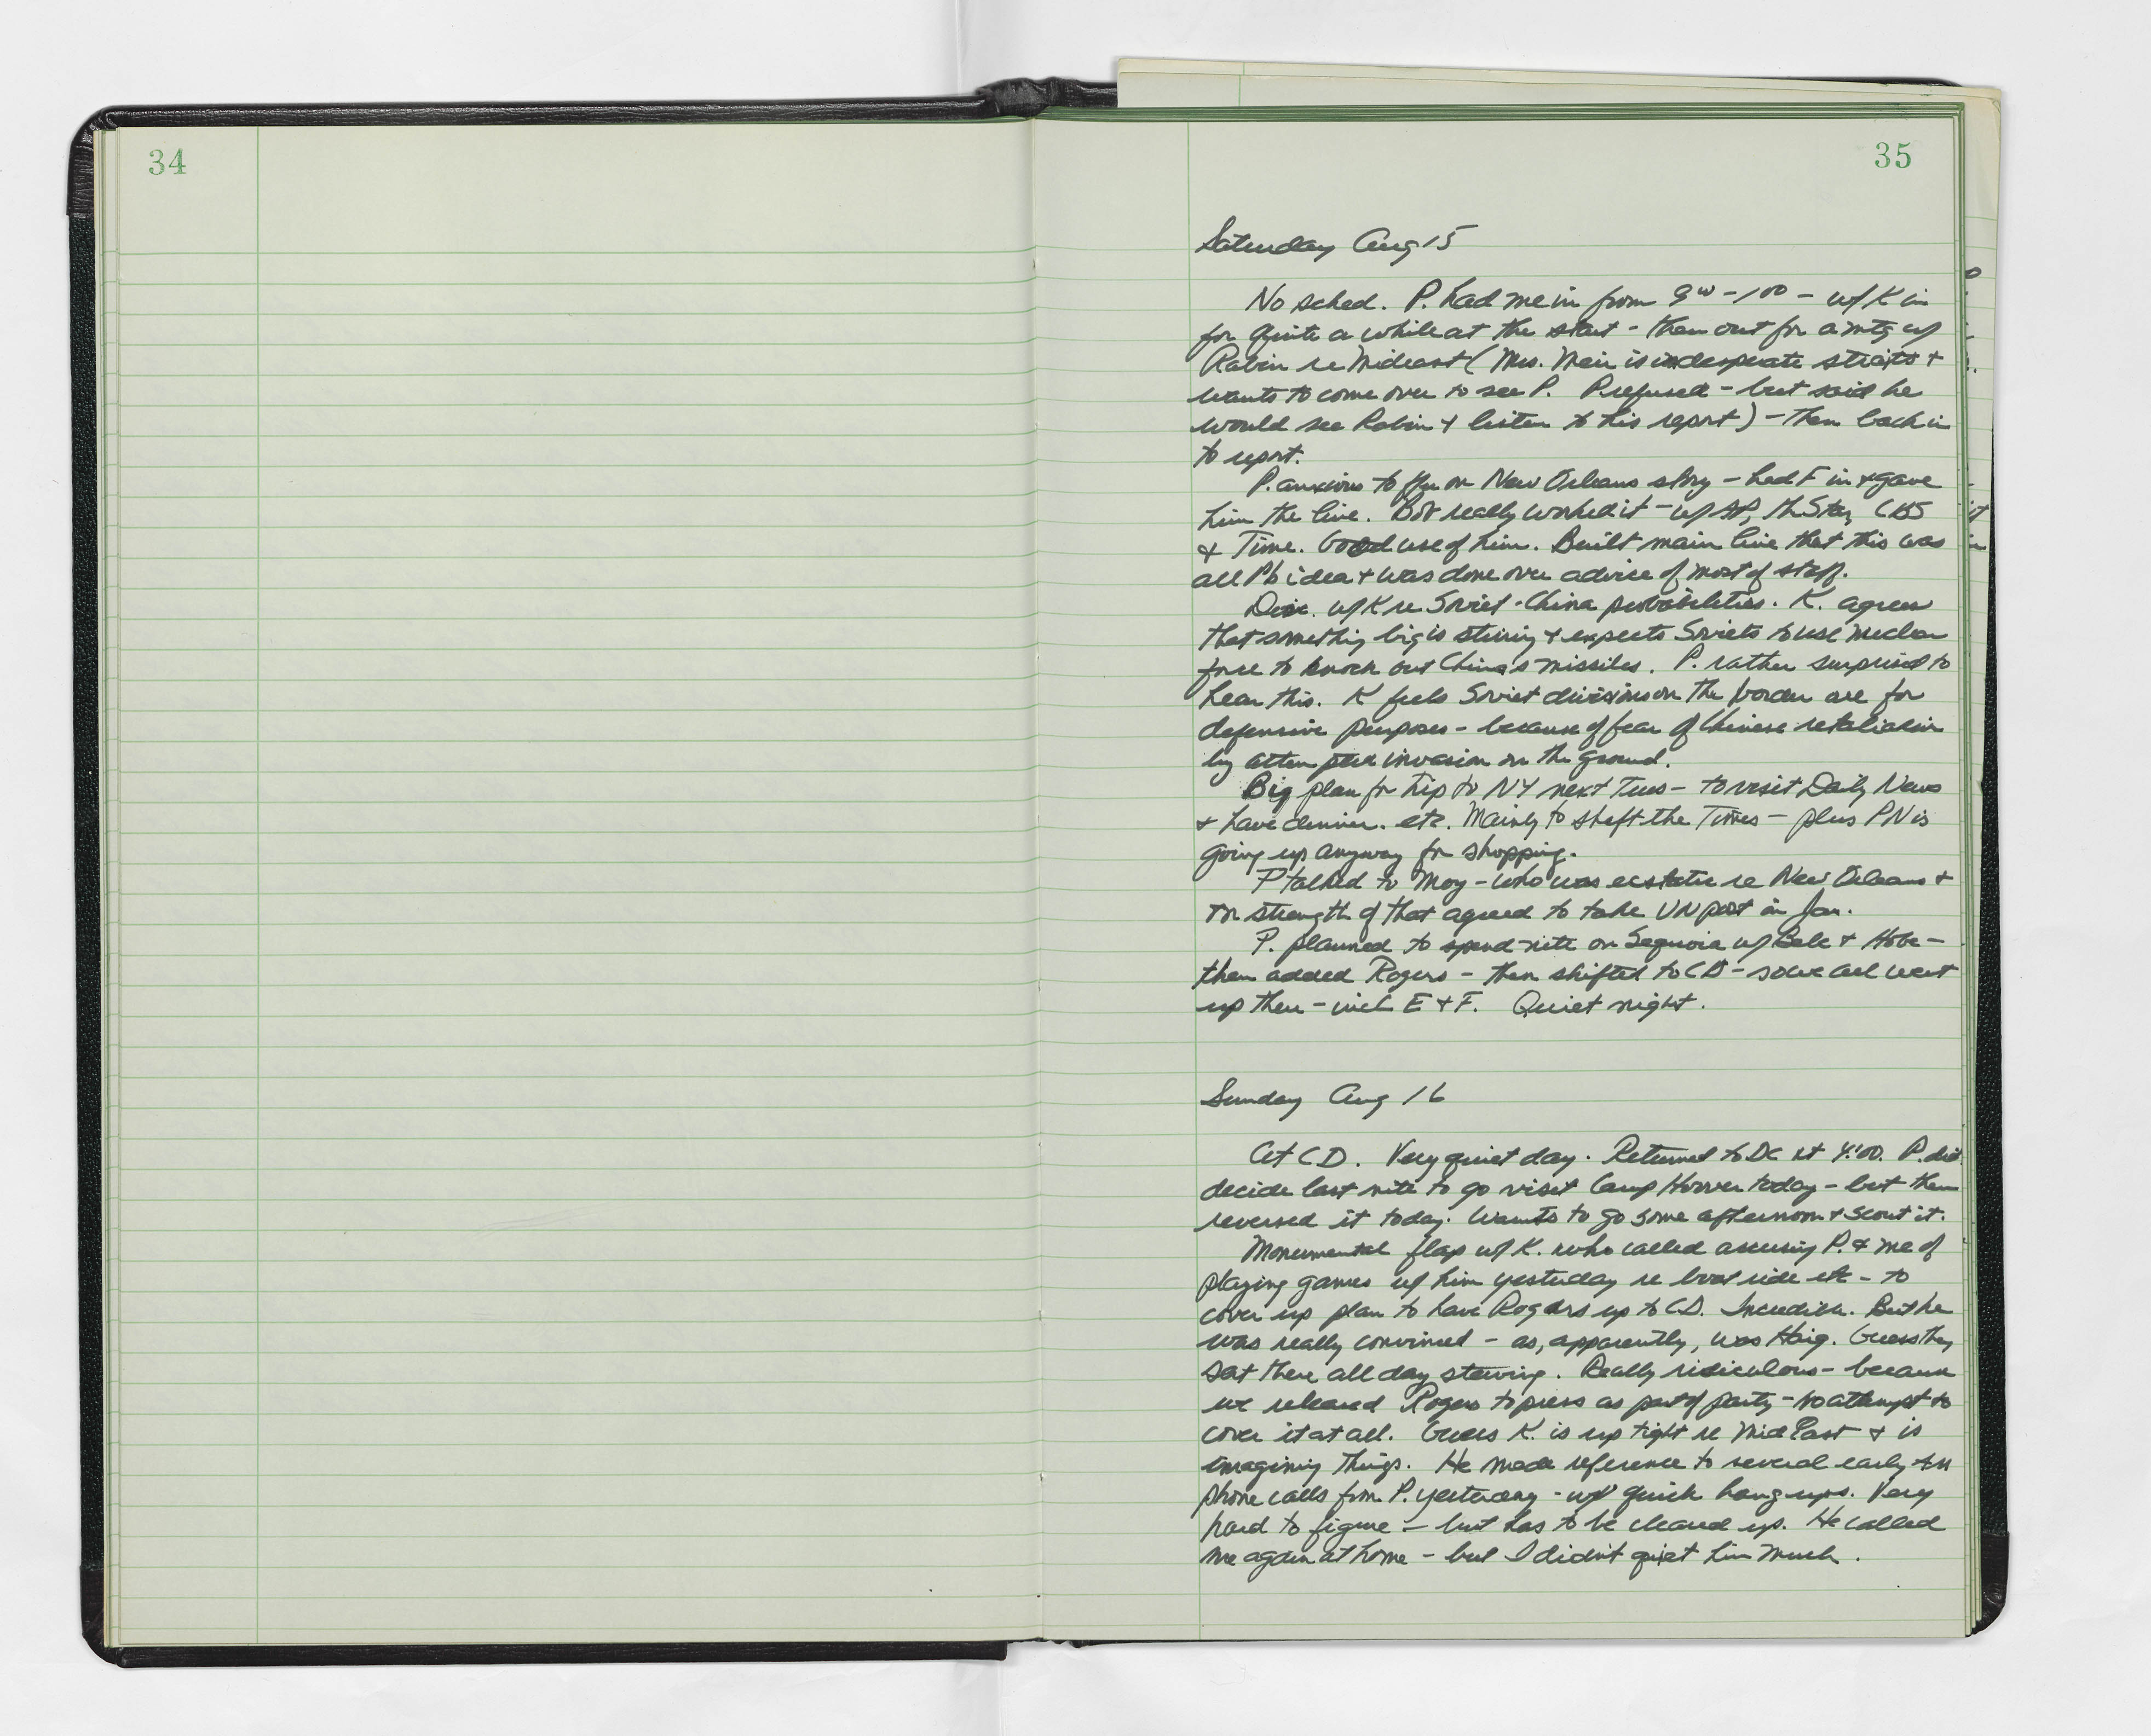 34
35
Saturday Aug 15
No sched. P. had me in from 9⁰⁰-1⁰⁰ - w/ K in
for quite a while at the start - then out for a mtg w/
Rabin re Mideast (Mrs. Meir is in desperate straits +
wants to come over to see P. P. refused - but said he
would see Rabin + listen to his report) - then back in
to report.
P. anxious to on New Orleans story - had F in + gave
him the line. Bob really worked it - w/ AP, the Star, CBS
& Time. Good use of him. Built main line that this was
all P's idea + was done over advice of most of staff.
Disc. w/ K re Soviet-China probabilities. K. agrees
that something big is stirring + expects Soviets to use nuclear
force to knock out China's missiles. P. rather surprised to
hear this. K feels Soviet divisions on the border are for
defensive purposes - because of fear of Chinese retaliation
by attempted invasion on the ground.
Big plan for trip to NY next Tues - to visit Daily News
+ have dinner. etc. Mainly to shaft the Times - plus PN is
going up anyway for shopping.
P talked to Moy - who was ecstatic re New Orleans +
on strength of that agreed to take UN post in Jan.
P. planned to spend nite on Sequoia w/ Bebe + Hobe -
then added Rogers - then shifted to CD - so we all went
up there - incl E + F. Quiet night.
Sunday Aug 16
At CD. Very quiet day. Returned to DC at 4:00. P. did
decide last nite to go visit Camp Hoover today - but then
reversed it today. Wants to go some afternoon + scout it.
Monumental flap w/ K. who called accusing P. & me of
playing games w/ him yesterday re boat ride etc - to
cover up plan to have Rogers up to CD. Incredible. But he
was really convinced - as, apparently, was Haig. Guess they
sat there all day stewing. Really ridiculous - because
we released Rogers to press as part of party - no attempt to
cover it at all. Guess K. is up tight re Mid East + is
imagining things. He made reference to several early
phone calls from P. yesterday - w/ quick hang ups. Very
hard to figure - but has to be cleared up. He called
me again at home - but I didn't quiet him much.